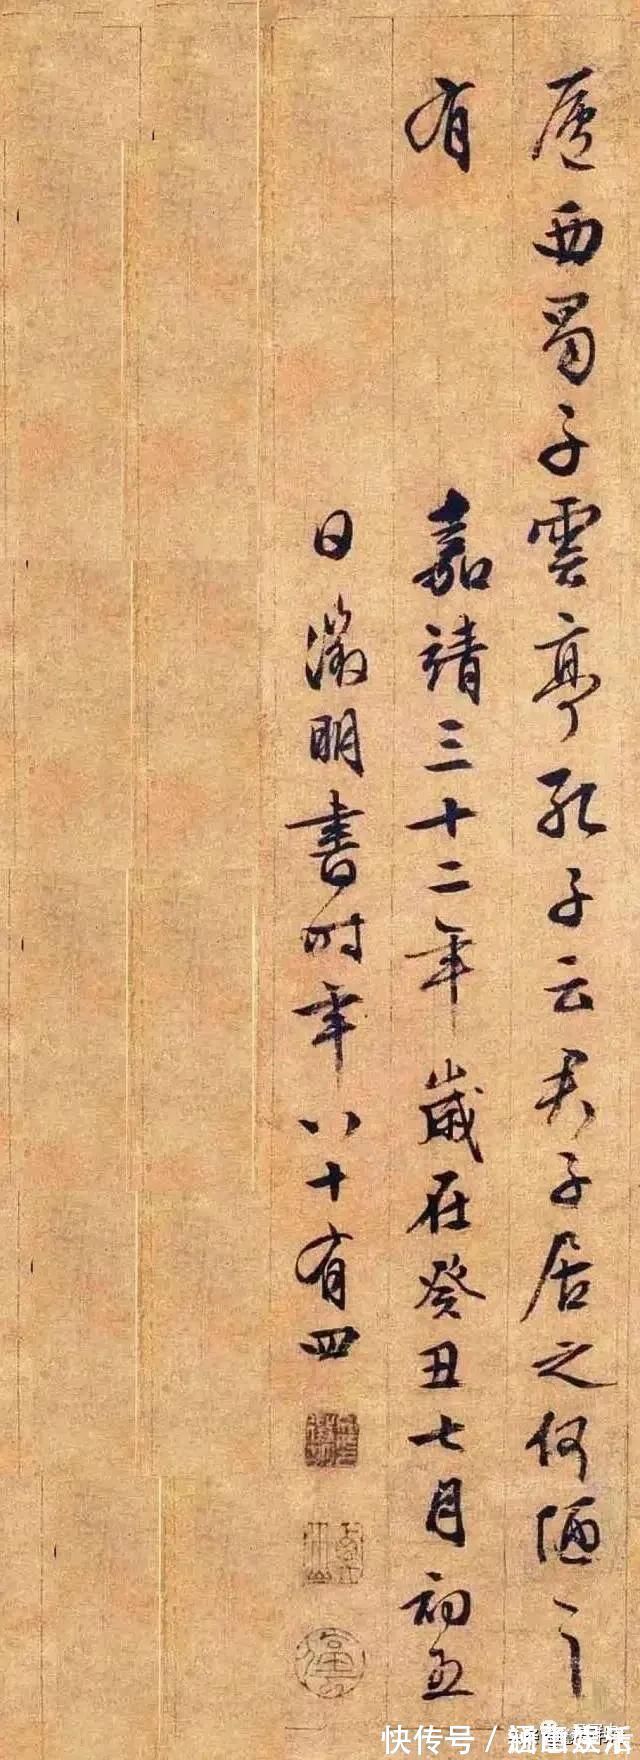 廬西蜀子雲亭孔子云君子居之何陋之
有
嘉靖三十二年歲在癸丑七月初五
日徵明書時年八十有四
快传号/涵雷娱活